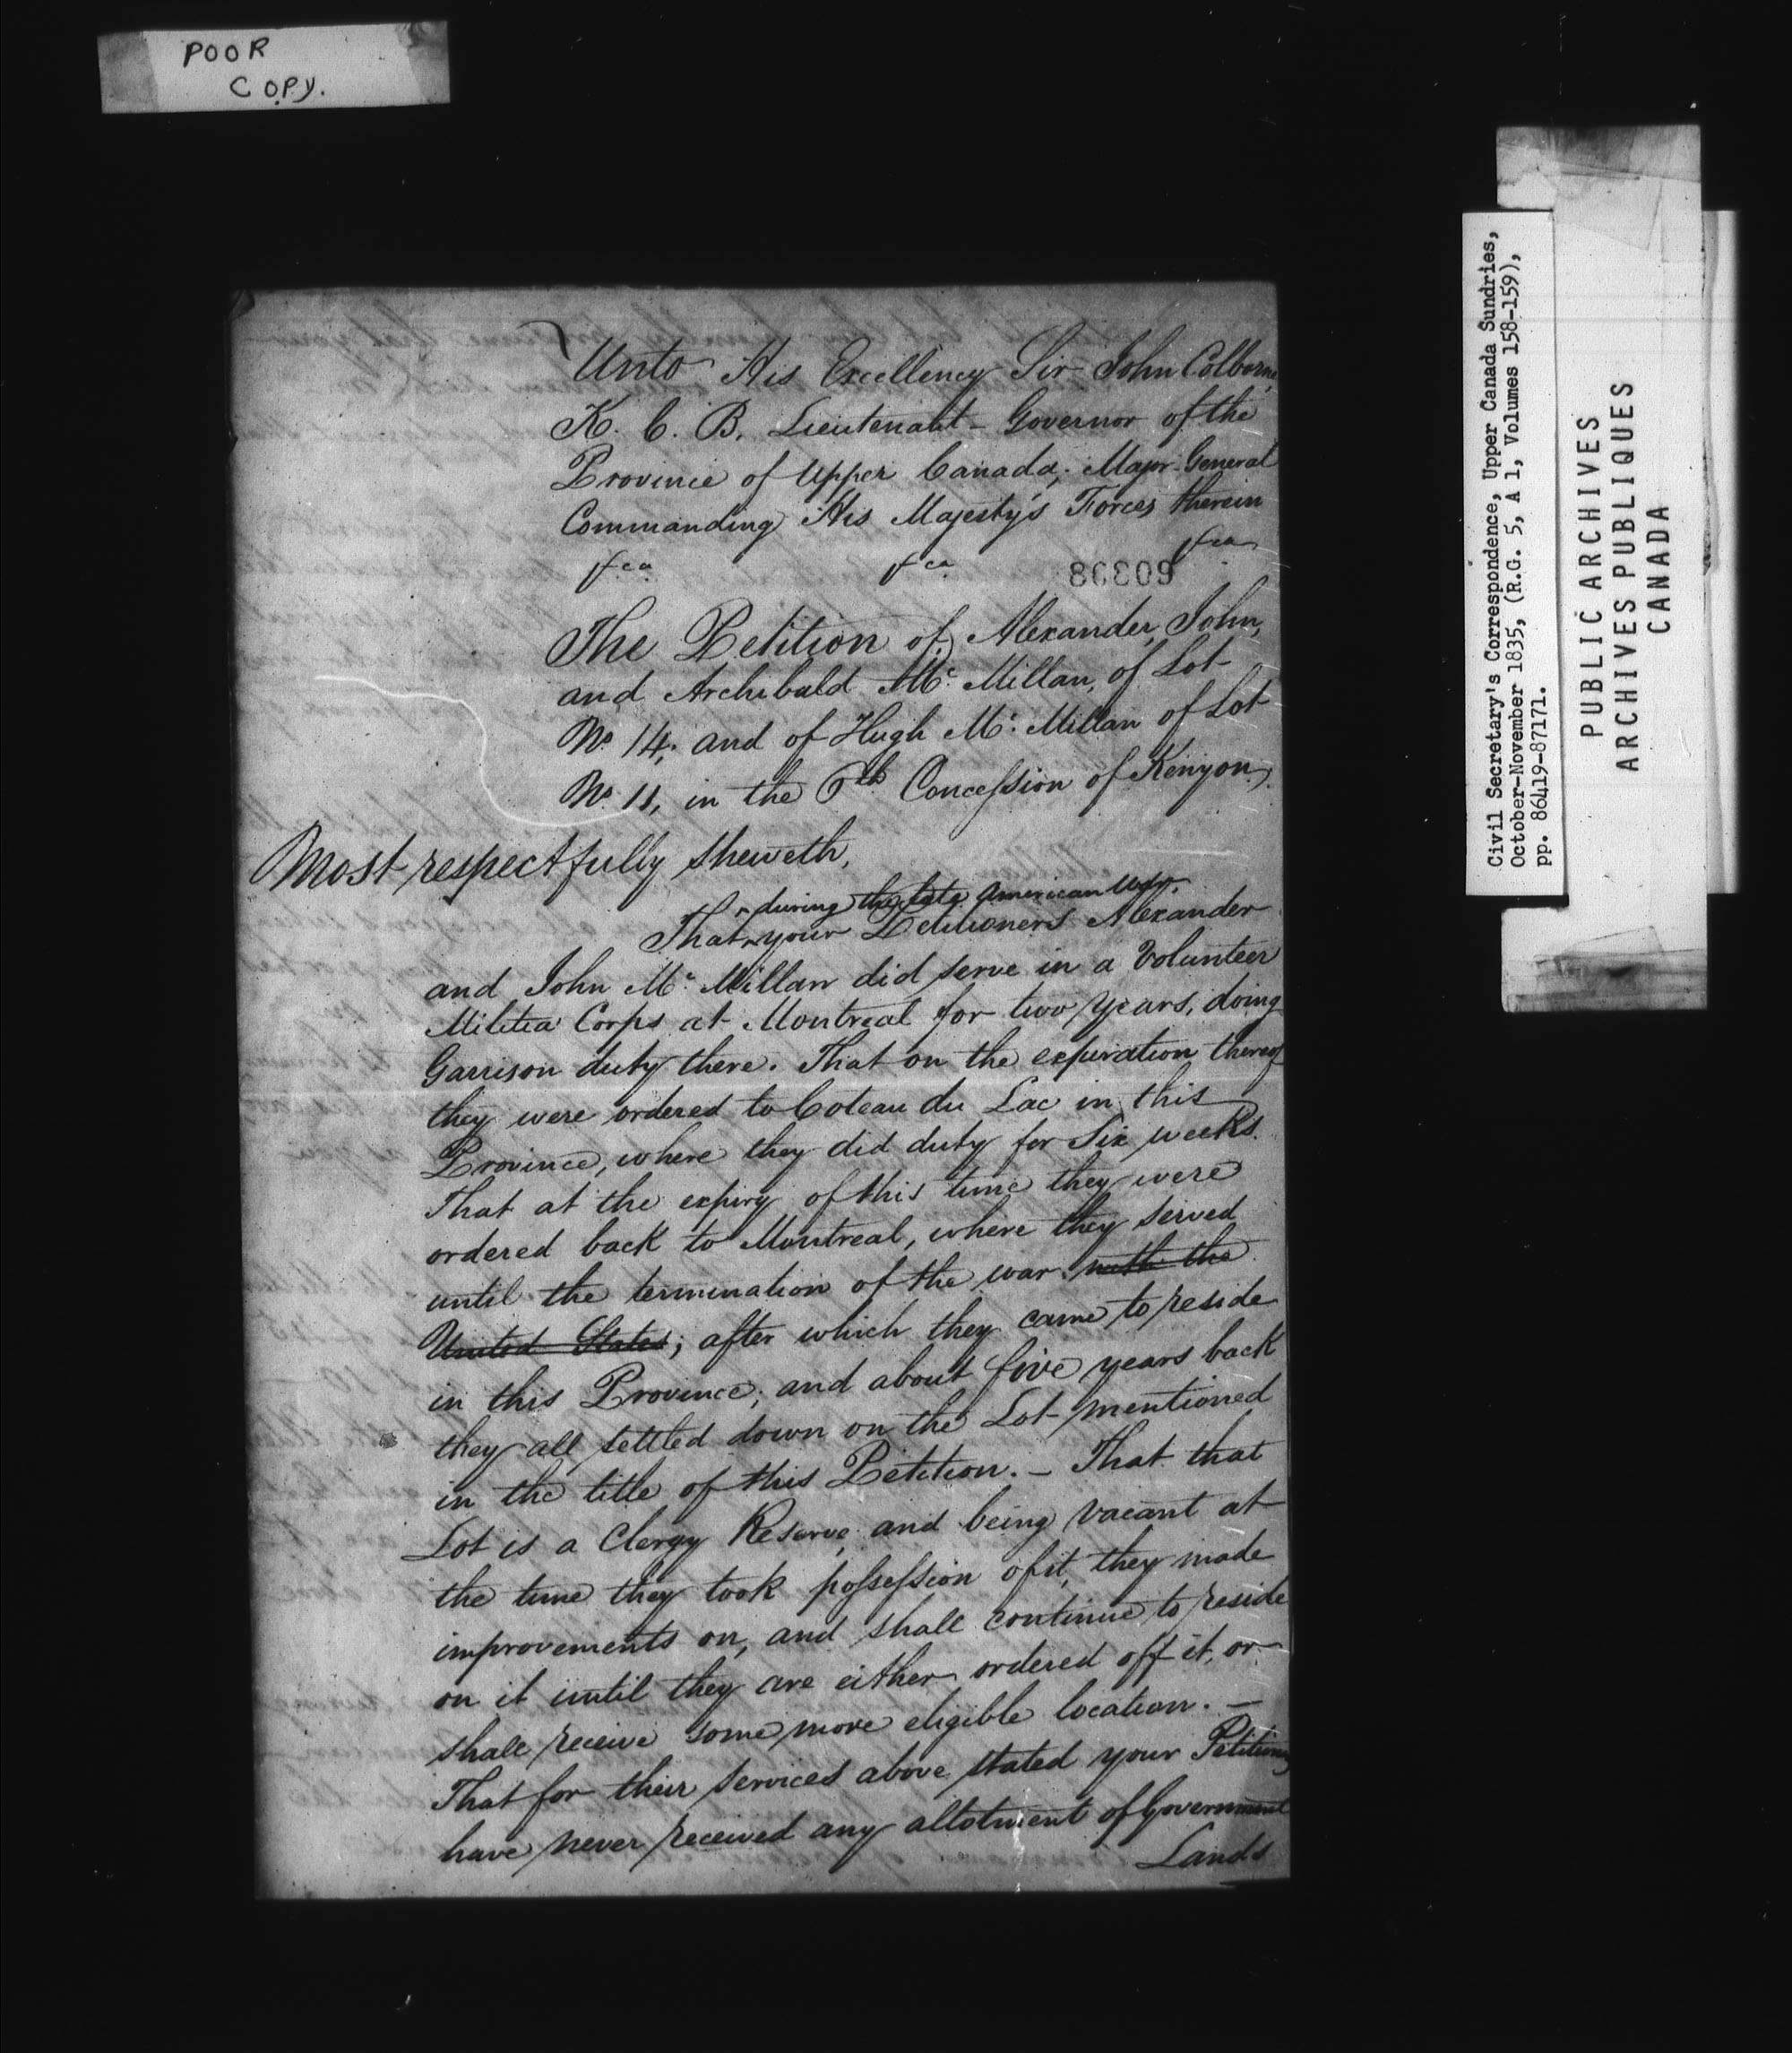 POOR
COPY.
Unto His Excellency Sir John Colborne,
K. C. B. Lieutenant-Governor of the
Province of Upper Canada, Major-General
Commanding His Majesty's Forces therein
&ca &ca &ca
The Petition of Alexander, John,
and Archibald Mc. Millan, of Lot
No. 14, and of Hugh Mc. Millan of Lot
No. 11, in the 6th Concession of Kenyon.
Most respectfully sheweth,
during the late American War,
That your Petitioners Alexander
and John Mc. Millan did serve in a Volunteer
Militia Corps at Montreal for two years, doing
Garrison duty there. That on the expiration thereof
they were ordered to Coteau du Lac in this
Province, where they did duty for Six weeks.
That at the expiry of this time they were
ordered back to Montreal, where they served
until the termination of the war with the
United States; after which they came to reside
in this Province; and about five years back
they all settled down on the Lot mentioned
in the title of this Petition. – That that
Lot is a Clergy Reserve, and being vacant at
the time they took possession of it, they made
improvements on, and shall continue to reside
on it until they are either ordered off it, or
shall receive some more eligible location. –
That for their services above stated your Petitioners
have never received any allotment of Government
Lands
Civil Secretary's Correspondence, Upper Canada Sundries,
October-November 1835, (R.G. 5, A 1, Volumes 158-159),
pp. 86419-87171.
PUBLIC ARCHIVES
ARCHIVES PUBLIQUES
CANADA